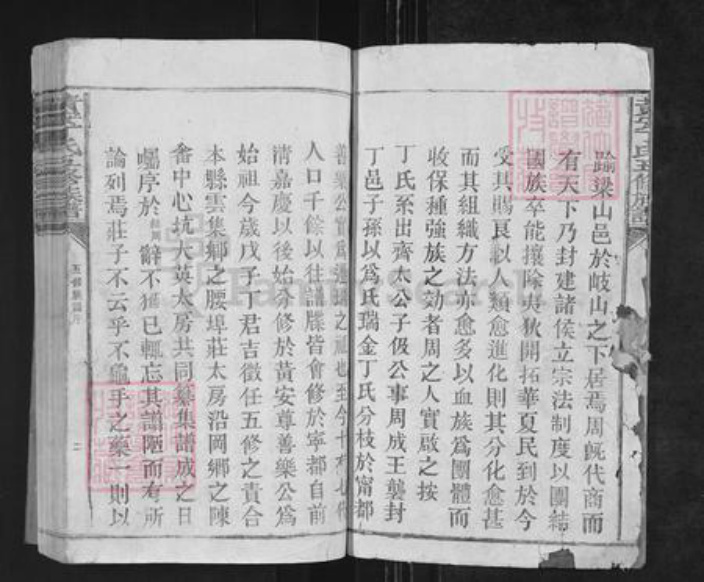 踰梁山邑於岐山之下居焉周旣代商而
有天下乃封建諸侯立宗法制度以團結
國族卒能攘除夷狄開拓華夏民到於今
受其賜良以人類愈進化則其分化愈甚
而其組織方法亦愈多以血族爲團體而
收保種強族之効者周之人實啟之按
丁氏系出齊太公子伋公事周成王襲封
丁邑子孫以爲氏瑞金丁氏分枝於甯都
善樂公實爲 之祖也至今十有七代
人口千餘以往譜牒皆會修於寧都自前
清嘉慶以後始分修於黃安尊善樂公爲
始祖今歲戊子丁君吉徵任五修之責合
本縣雲集鄉之腰埠莊太房沿岡鄉之陳
畬中心坑大英太房共同纂集譜成之日
囑序於 辭不獲已輒忘其譾陋而有所
論列焉莊子不云乎不龜手之藥一則以
五修族譜序
二